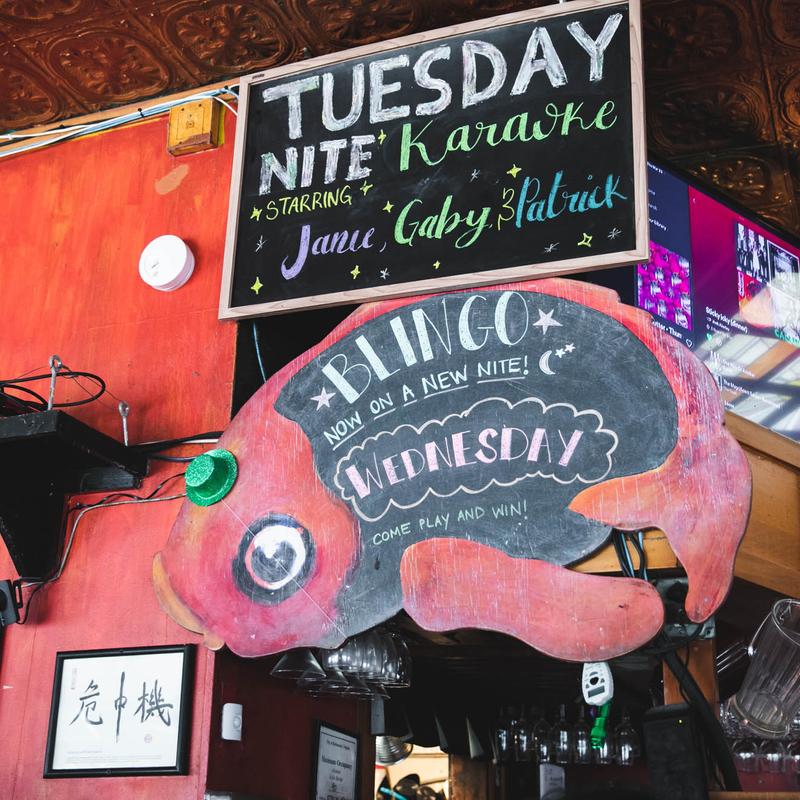 TUESDAY
NITE Karaoke
STARRING
Janie, Gaby, & Patrick
BLINGO
NOW ON A NEW NITE!
WEDNESDAY
COME PLAY AND WIN!
危中機
Maximum Occupancy